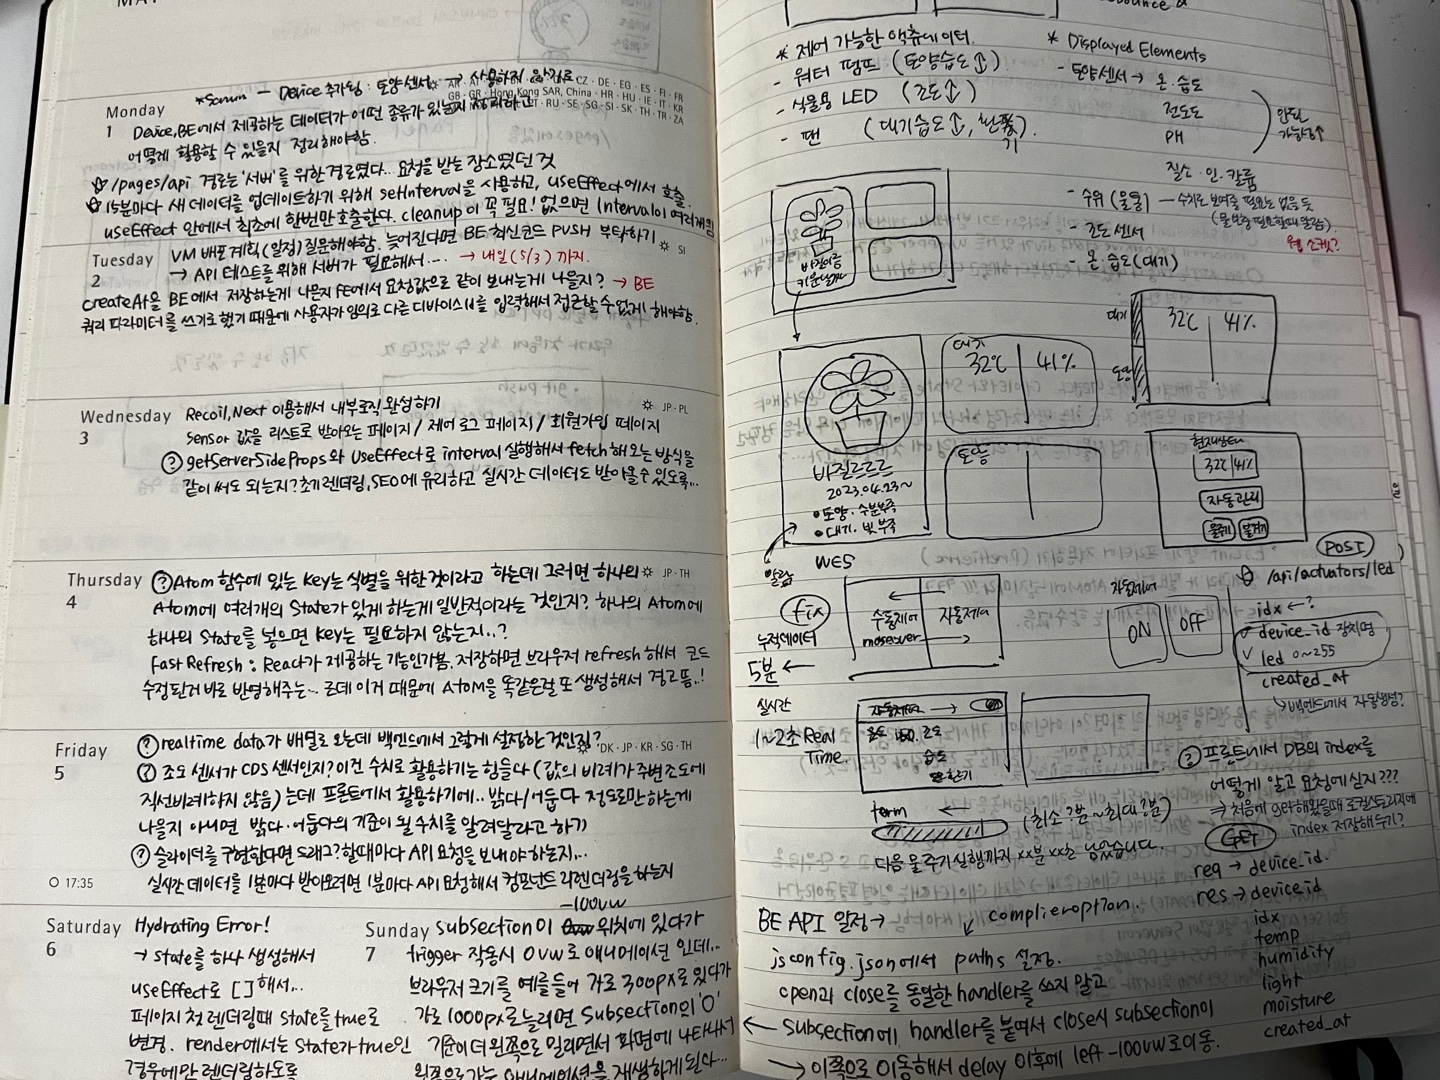 *Scrum - Device 추가됨 : 토양센서 → 사용하지 않기로
CZ · DE · EG · ES · FI · FR
GB · GR · Hong Kong SAR, China · HR · HU · IE · IT · KR
RU · SE · SG · SI · SK · TH · TR · ZA
Monday
1
Device, BE에서 제공하는 데이터가 어떤 종류가 있는지 정리하고
어떻게 활용할 수 있을지 정리해야함.
/pages/api 경로는 '서버'를 위한 경로였다... 요청을 받는 장소였던 것
15분마다 새 데이터를 업데이트하기 위해 setInterval을 사용하고, useEffect에서 호출.
useEffect 안에서 최초에 한번만 호출한다. cleanup이 꼭 필요! 없으면 Interval이 여러개됨
Tuesday
2
VM 배포계획(일정) 질문해야함. 늦어진다면 BE 최신코드 PUSH 부탁하기
SI
→ API 테스트를 위해 서버가 필요해서... → 내일(5/3)까지.
createAt을 BE에서 저장하는게 나은지 FE에서 요청값으로 같이 보내는게 나을지? → BE
쿼리 파라미터를 쓰기로 했기 때문에 사용자가 임의로 다른 디바이스 id를 입력해서 접근할 수 없게 해야함.
Wednesday
3
Recoil, Next 이용해서 내부로직 완성하기
JP · PL
Sensor 값을 리스트로 받아오는 페이지 / 제어 로그 페이지 / 회원가입 페이지
? getServerSideProps와 useEffect로 interval 실행해서 fetch 해오는 방식을
같이 써도 되는지? 초기 렌더링, SEO에 유리하고 실시간 데이터도 받아올 수 있도록...
Thursday
4
? Atom 함수에 있는 key는 식별을 위한 것이라고 하는데 그러면 하나의
JP · TH
Atom에 여러개의 State가 있게 하는게 일반적이라는 것인지? 하나의 Atom에
하나의 State를 넣으면 key는 필요하지 않는지..?
Fast Refresh : React가 제공하는 기능인가봄. 저장하면 브라우저 refresh 해서 코드
수정된거 바로 반영해주는... 근데 이거 때문에 Atom을 똑같은걸 또 생성해서 경고 뜸..!
Friday
5
? realtime data가 배열로 오는데 백엔드에서 그렇게 설정한 것인지?
DK · JP · KR · SG · TH
? 조도 센서가 CDS 센서인지? 이건 수치로 활용하기는 힘들다 (값의 비례가 주변조도에
직선비례하지 않음)는데 프론트에서 활용하기에.. 밝다/어둡다 정도로만 하는게
나을지 아니면 밝다·어둡다의 기준이 될 수치를 알려달라고 하기
? 슬라이더를 구현한다면 드래그? 할때마다 API 요청을 보내야 하는지...
17:35
실시간 데이터를 1분마다 받아오려면 1분마다 API 요청해서 컴포넌트 리렌더링을 하는지
Saturday
6
Hydrating Error!
→ state를 하나 생성해서
useEffect로 [ ] 해서...
페이지 첫 렌더링때 state를 true로
변경. render에서는 state가 true인
경우에만 렌더링하도록
-100vw
Sunday
7
subsection이 위치에 있다가
trigger 작동시 0vw로 애니메이션 인데...
브라우저 크기를 예를 들어 가로 300px로 있다가
가로 1000px로 늘리면 Subsection의 '0'
기준이 더 왼쪽으로 밀리면서 화면에 나타나서
왼쪽으로 가는 애니메이션을 재생하게 된다...
* 제어 가능한 액츄에이터.
- 워터 펌프 (토양습도↑)
- 식물용 LED (조도↑)
- 팬 (대기습도↓, 환풍기)
* Displayed Elements
- 토양센서 → 온·습도
전도도
PH
질소·인·칼륨
안될 가능성↑
- 수위(물통) — 수치로 보여줄 필요는 없을 듯
(물 보충 필요할때 알람)
- 조도 센서
웹 소켓?
- 온·습도(대기)
바질이름
키운날짜
대기
32℃ 41%
토양
대기
32℃ 41%
토양
바질르르르
2023.04.23~
• 토양·수분부족
• 대기·빛부족
알람
현재상태
32℃ 41%
자동관리
물주기
WES
fix
수동제어
자동제어
moseover
누적데이터
5분 ←
자동제어
ON
OFF
POST
/api/actuators/led
idx ← ?
device_id 장치명
led 0~255
created_at
↳ 백엔드에서 자동생성?
실시간
1~2초 Real
Time.
자동제어 →
온도
조도
습도
환기
term
(최소 ?분 ~ 최대 ?분)
다음 물주기 실행까지 xx분 xx초 남았습니다.
? 프론트에서 DB의 index를
어떻게 알고 요청에 싣지???
→ 처음에 get해왔을때 로컬스토리지에
index 저장해두기?
GET
req → device_id.
res → device_id
idx
temp
humidity
light
moisture
created_at
BE API 일정 →
complieroption
jsconfig.json에서 paths 설정.
open과 close를 동일한 handler를 쓰지 말고
← subsection에 handler를 붙여서 close시 subsection이
→ 이쪽으로 이동해서 delay 이후에 left -100vw로 이동.